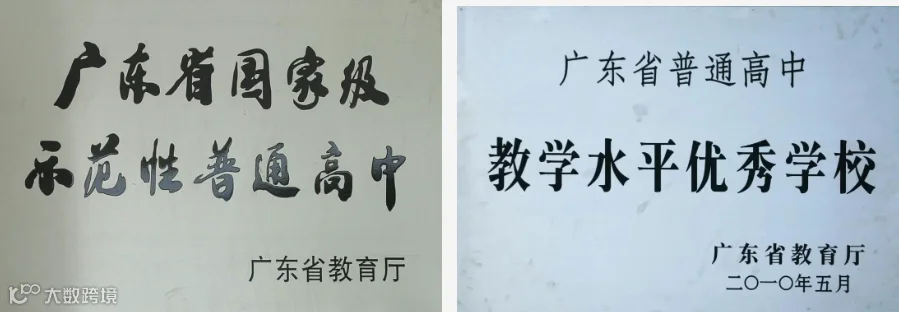 广东省国家级
示范性普通高中
广东省教育厅
大数跨境
广东省普通高中
教学水平优秀学校
广东省教育厅
二〇一〇年五月